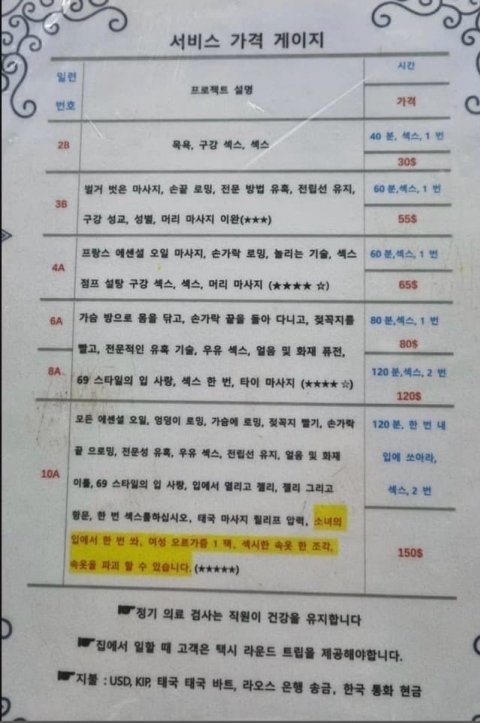 서비스 가격 게이지
일련 번호
프로젝트 설명
시간
가격
2B
목욕, 구강 섹스, 섹스
40 분, 섹스, 1 번
30$
3B
벌거 벗은 마사지, 손끝 로밍, 전문 방법 유혹, 전립선 유지,
구강 성교, 성별, 머리 마사지 이완(★★★)
60 분,섹스, 1 번
55$
4A
프랑스 에센셜 오일 마사지, 손가락 로밍, 놀리는 기술, 섹스
점프 설탕 구강 섹스, 섹스, 머리 마사지 (★★★★ ☆)
60 분,섹스, 1 번
65$
6A
8A
가슴 방으로 몸을 닦고, 손가락 끝을 돌아 다니고, 젖꼭지를
빨고, 전문적인 유혹 기술, 우유 섹스, 얼음 및 화재 퓨전,
69 스타일의 입 사랑, 섹스 한 번, 타이 마사지 (★★★★ ☆)
80 분,섹스, 1 번
80$
120 분,섹스, 2 번
120$
10A
모든 에센셜 오일, 엉덩이 로밍, 가슴에 로밍, 젖꼭지 빨기, 손가락
끝 으로밍, 전문성 유혹, 우유 섹스, 전립선 유지, 얼음 및 화재
이틀, 69 스타일의 입 사랑, 입에서 열리고 젤리, 젤리 그리고
항문, 한 번 섹스를하십시오, 태국 마사지 릴리프 압력, 소녀의
입에서 한 번 쏴, 여성 오르가즘 1 택, 섹시한 속옷 한 조각,
속옷을 파괴 할 수 있습니다. (★★★★★)
120 분, 한 번 내
입에 쏘아라,
섹스, 2 번
150$
☛정기 의료 검사는 직원이 건강을 유지합니다
☛집에서 일할 때 고객은 택시 라운드 트립을 제공해야합니다.
☛지불 : USD, KIP, 태국 태국 바트, 라오스 은행 송금, 한국 통화 현금